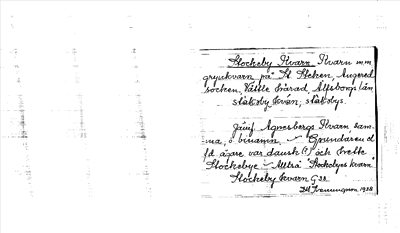 Stockeby Kvarn Kvarn m.m
grynkvarn på St. Steken, Angered
socken, Vättle härad, Älfsborgs län
stakəby kvan; stakəbys.
Jämf. Agnesbergs Kvarn sam-
ma, o binamn. – Grundaren o
fd ägare var dansk (?) och hette
Stockebye – Alltså "Stockebyes kvarn"
Stockeby kvarn G 33
1928